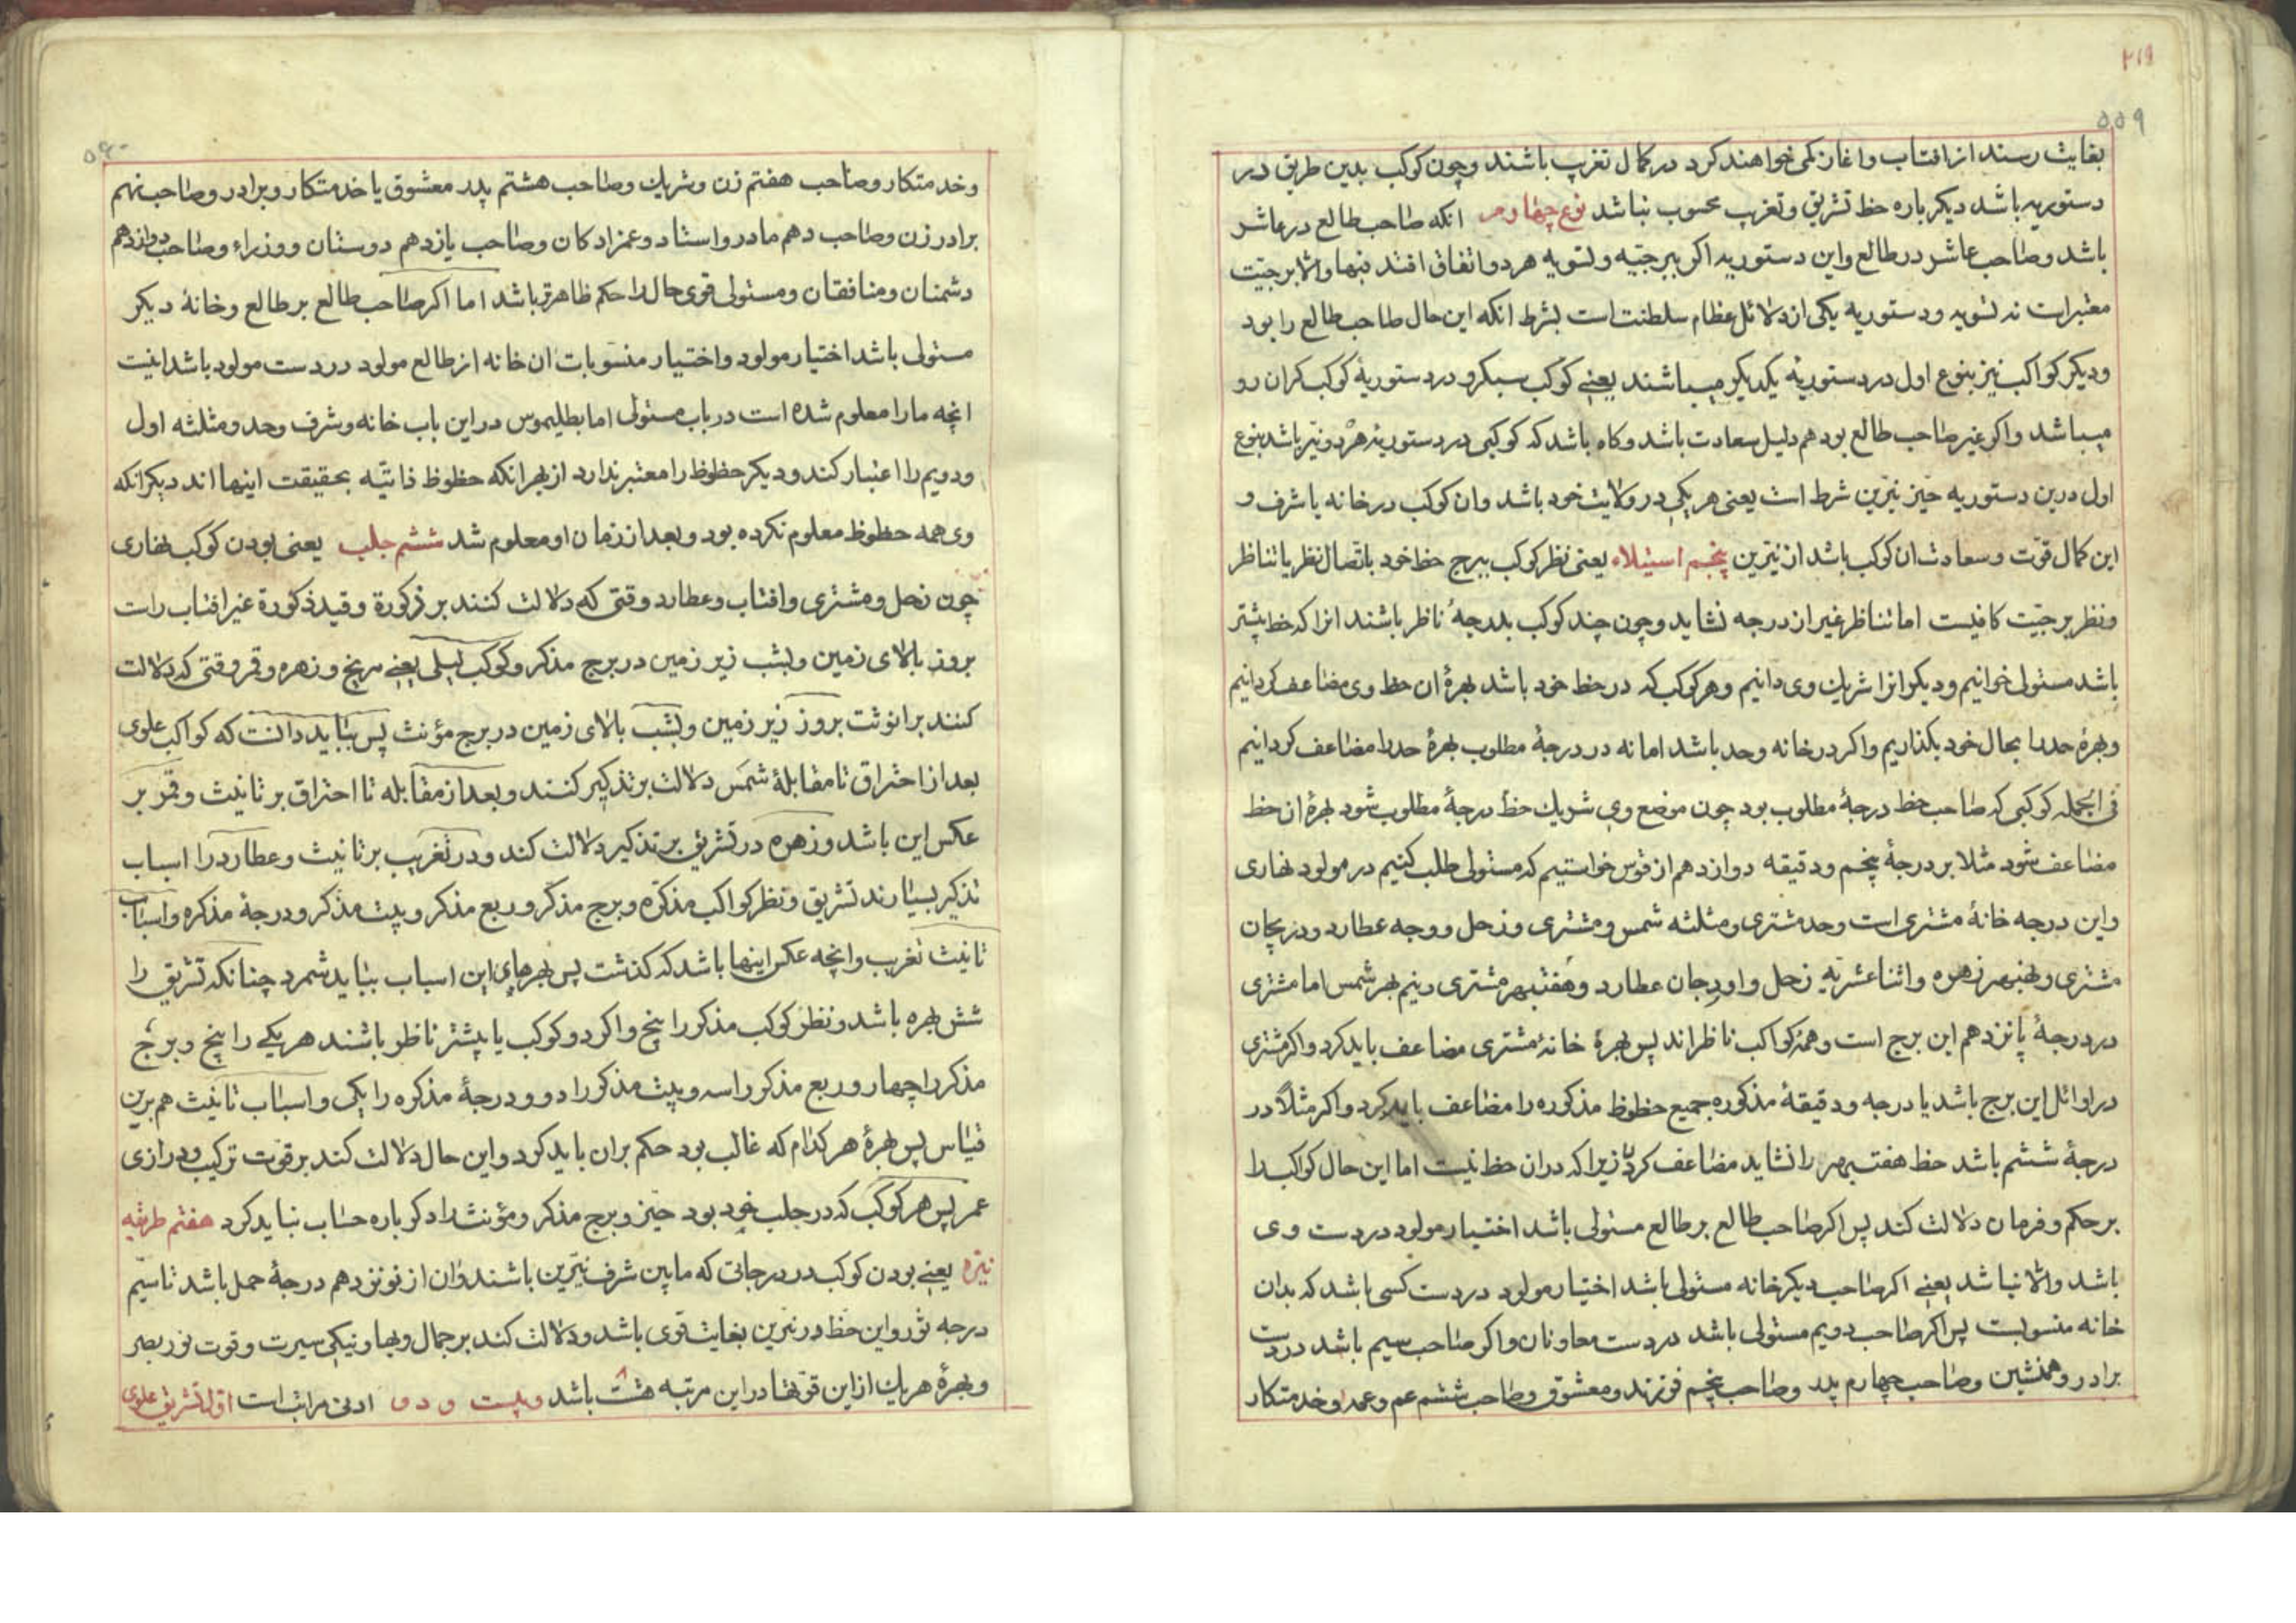 ۲۱۹
۵۵۹
بغایت رسند از افتاب واغاز کمی خواهند کرد در کمال تغریب باشند وچون کوکب بدین طریق در
دستوریه باشد دیکر باره حظ تشریق وتغریب محسوب نباشد نوع چهارم انکه صاحب طالع در عاشر
باشد وصاحب عاشر در طالع واین دستوریه اکر ببرجیّه ولتسویه هر دو اتفاق افتد فبها والا برجیّت
معتبر است نه لتسویه ودستوریه یکی از دلائل عظام سلطنت است بشرط انکه این حال صاحب طالع را بود
ودیکر کواکب نیز بنوع اول در دستوریهٔ یکدیکر میباشند یعنی کوکب سبکرو در دستوریهٔ کوکب کران رو
میباشد واکر غیر صاحب طالع بود هم دلیل سعادت باشد وکاه باشد که کوکبی در دستوریهٔ هر دو نیّر باشد بنوع
اول درین دستوریه حیّز نیّرین شرط است یعنی هر یکی در ولایت خود باشد وان کوکب در خانه یا شرف و
این کمال قوّت وسعادت ان کوکب باشد از نیّرین پنجم استیلاء یعنی نظر کوکب ببرج حظ خود باتصال نظر یا تناظر
ونظر برجیّت کافیست اما تناظر غیر از درجه نشاید وچون چند کوکب بدرجهٔ ناظر باشند انرا که حظ بیشتر
باشد مستولی خوانیم ودیکر انرا شریك وی دانیم وهر کوکب که در حظ خود باشد بهرهٔ ان حظ وی مضاعف کردانیم
وبهرهٔ حد را بحال خود بکذاریم واکر در خانه وحد باشد اما نه در درجهٔ مطلوب بهرهٔ حد را مضاعف کردانیم
فی الجمله کوکبی که صاحب حظ درجهٔ مطلوب بود چون موضع وی شریك حظ درجهٔ مطلوب شود بهرهٔ ان حظ
مضاعف شود مثلا بر درجهٔ پنجم ودقیقه دوازدهم از قوس خواستیم که مستولی طلب کنیم در مولود نهاری
واین درجه خانهٔ مشتری است وحد مشتری ومثلثه شمس ومشتری وزحل ووجه عطارد ودریجان
مشتری ونهبهر زهره واثناعشریّه زحل واودرجان عطارد وهفتبهر مشتری ونیم بهر شمس اما مشتری
در درجهٔ پانزدهم این برج است وهمهٔ کواکب ناظراند پس بهرهٔ خانهٔ مشتری مضاعف باید کرد واکر مشتری
در اوائل این برج باشد یا درجه ودقیقهٔ مذکوره جمیع حظوظ مذکوره را مضاعف باید کرد واکر مثلاً در
درجهٔ ششم باشد حظ هفتبهر را نشاید مضاعف کرد زیرا که دران حظ نیست اما این حال کواکب را
بر حکم وفرمان دلالت کند پس اکر صاحب طالع بر طالع مستولی باشد اختیار مولود در دست وی
باشد والا نباشد یعنی اکر صاحب دیکر خانه مستولی باشد اختیار مولود در دست کسی باشد که بدان
خانه منسوبست پس اکر صاحب دویم مستولی باشد در دست معاونان واکر صاحب سیم باشد در دست
برادر وهمنشین وصاحب چهارم پدر وصاحب پنجم فرزند ومعشوق وصاحب ششم عم وعمه وخدمتکار
۵۶۰
وخدمتکار وصاحب هفتم زن وشریك وصاحب هشتم پدر معشوق یا خدمتکار وبرادر وصاحب نهم
برادر زن وصاحب دهم مادر واستاد وعمزادکان وصاحب یازدهم دوستان ووزراء وصاحب دوازدهم
دشمنان ومنافقان ومستولی قوی حال را حکم ظاهرتر باشد اما اکر صاحب طالع بر طالع وخانهٔ دیکر
مستولی باشد اختیار مولود واختیار منسوبات ان خانه از طالع مولود در دست مولود باشد اینست
انچه ما را معلوم شده است در باب مستولی اما بطلیموس در این باب خانه وشرف وحد ومثلثه اول
ودویم را اعتبار کند ودیکر حظوظ را معتبر ندارد از بهر انکه حظوظ ذاتیّه بحقیقت اینها اند دیکر انکه
وی همه حظوظ معلوم نکرده بود وبعد از زمان او معلوم شد ششم جلب یعنی بودن کوکب نهاری
چون زحل ومشتری وافتاب وعطارد وقتی که دلالت کنند بر ذکورة وقید ذکورة غیر افتاب راست
بروز بالای زمین وبشب زیر زمین در برج مذکر وکوکب لیلی یعنی مریخ وزهره وقمر وقتی که دلالت
کنند بر انوثت بروز زیر زمین وبشب بالای زمین در برج مؤنث پس بباید دانست که کواکب علوی
بعد از احتراق تا مقابلهٔ شمس دلالت بر تذکیر کنند وبعد از مقابله تا احتراق بر تانیث وقمر بر
عکس این باشد وزهره در تشریق بر تذکیر دلالت کند ودر تغریب بر تانیث وعطارد را اسباب
تذکیر بسیارند تشریق ونظر کواکب مذکّره وبرج مذکر وربع مذکر وبیت مذکر ودرجهٔ مذکره واسباب
تانیث تغریب وانچه عکس اینها باشد که کذشت پس بهرهای این اسباب بباید شمرد چنانکه تشریق را
شش بهره باشد ونظر کوکب مذکر را پنج واکر دو کوکب یا بیشتر ناظر باشند هر یکی را پنج وبرج
مذکر را چهار وربع مذکر را سه وبیت مذکر را دو ودرجهٔ مذکره را یکی واسباب تانیث هم برین
قیاس پس بهرهٔ هر کدام که غالب بود حکم بران باید کرد واین حال دلالت کند بر قوت ترکیب ودرازی
عمر پس هر کوکب که در جلب خود بود حیّز وبرج مذکر ومؤنث را دکر باره حساب نباید کرد هفتم طریقه
نیّره یعنی بودن کوکب در درجاتی که مابین شرف نیّرین باشند وان از نوزدهم درجهٔ حمل باشد تا سیّم
درجه ثور واین حظ در نیّرین بغایت قوی باشد ودلالت کند بر جمال وبها ونیکی سیرت وقوت نور بصر
وبهرهٔ هر یك از این قوتها در این مرتبه هشت باشد وبیست و دو ادنی مراتب است اول تشریق علوی